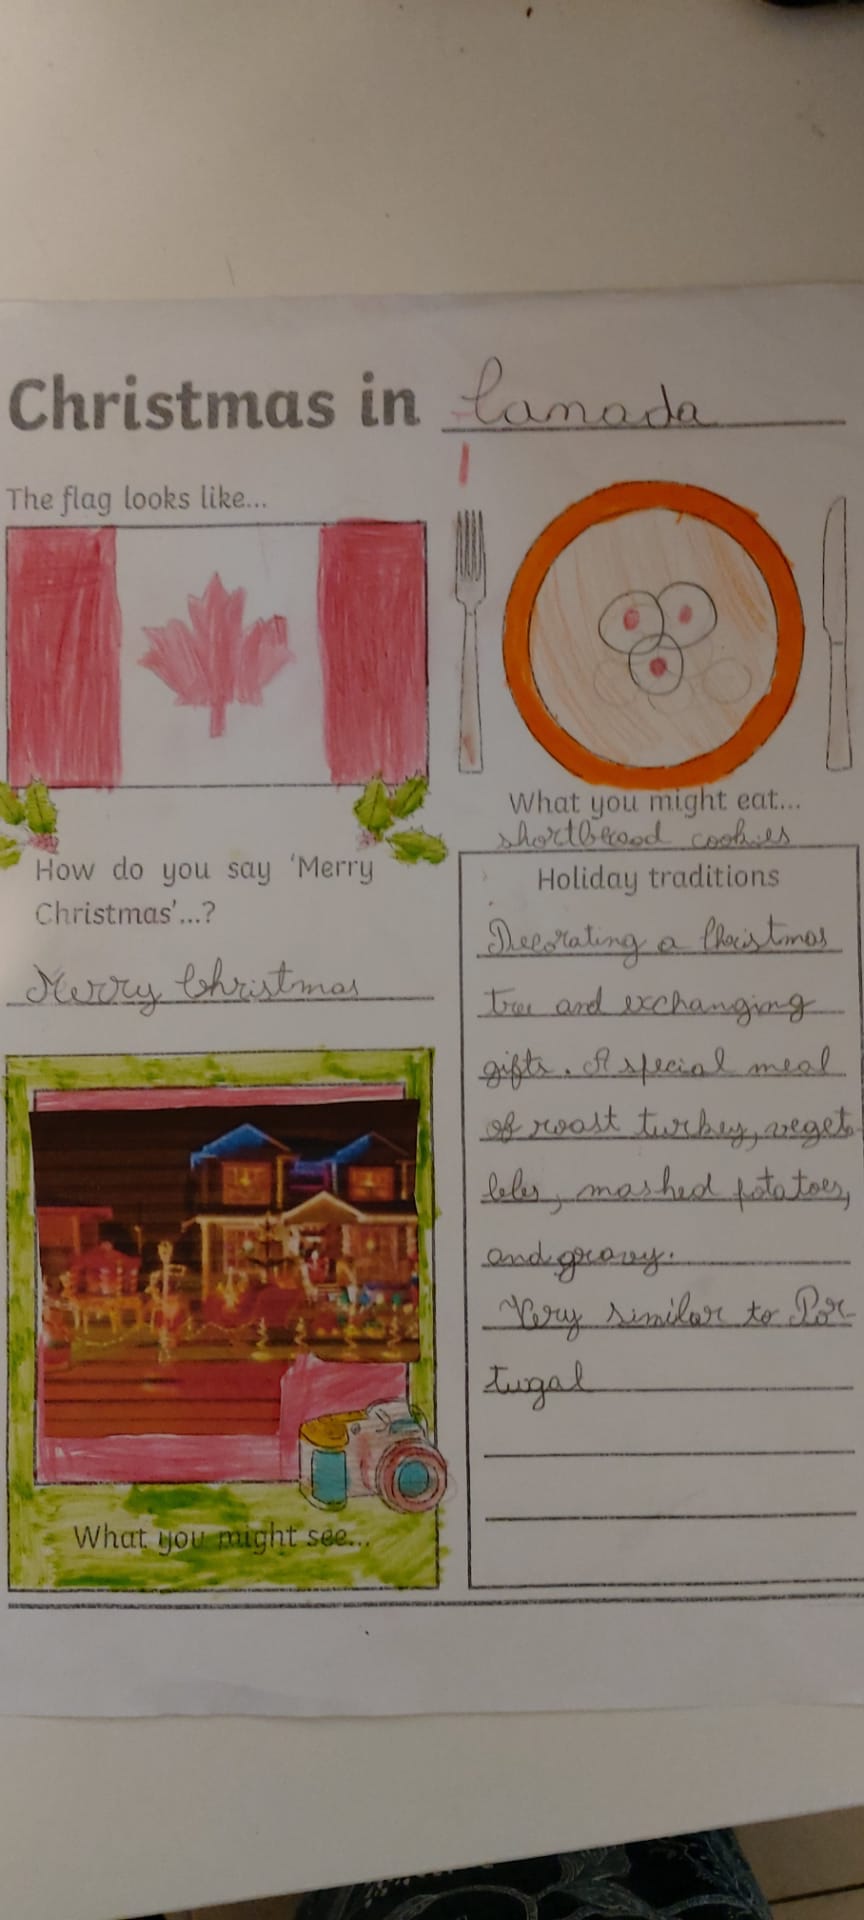 Christmas in Canada
The flag looks like...
What you might eat...
shortbread cookies
How do you say 'Merry
Christmas'...?
Merry Christmas
What you might see...
Holiday traditions
Decorating a Christmas
tree and exchanging
gifts. A special meal
of roast turkey, vegeta-
bles, mashed potatoes,
and gravy.
Very similar to Por-
tugal